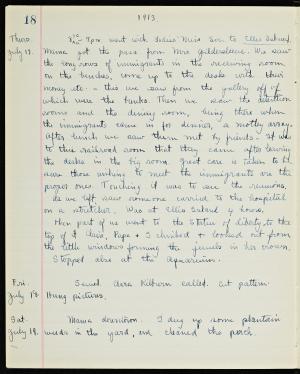 18
1913.
Thurs. July 17.
7pm. went with Ladies' Miss. Soc. to Ellis Island.
Mama got the pass from Mrs Gildersleeve. We saw
the long rows of immigrants in the receiving room
on the benches, come up to the desks with their
money etc - this we saw from the gallery off of
which were the bunks. Then we saw the detention
rooms and the dining room, being there when
the immigrants came in for dinner, a motley array.
After lunch we saw them met by friends. It was
to this railroad room that they came after leaving
the desks in the big room. Great care is taken to
sure those wishing to meet the immigrants are the
proper ones. Touching it was to see the reunions.
As we left saw someone carried to the hospital
on a stretcher. Was at Ellis Island 4 hours.
Then part of us went to the Statue of Liberty, to the
top of it Clara, Papa & I climbed & looked out from
the little windows forming the jewels in her crown.
Stopped also at the Aquarium.
Fri. July 18. Sewed. Dora Kilburn called. Cut pattern.
Hung pictures.
Sat. July 19. Mama downtown. I dug up some plantain
weeds in the yard, and cleaned the porch.